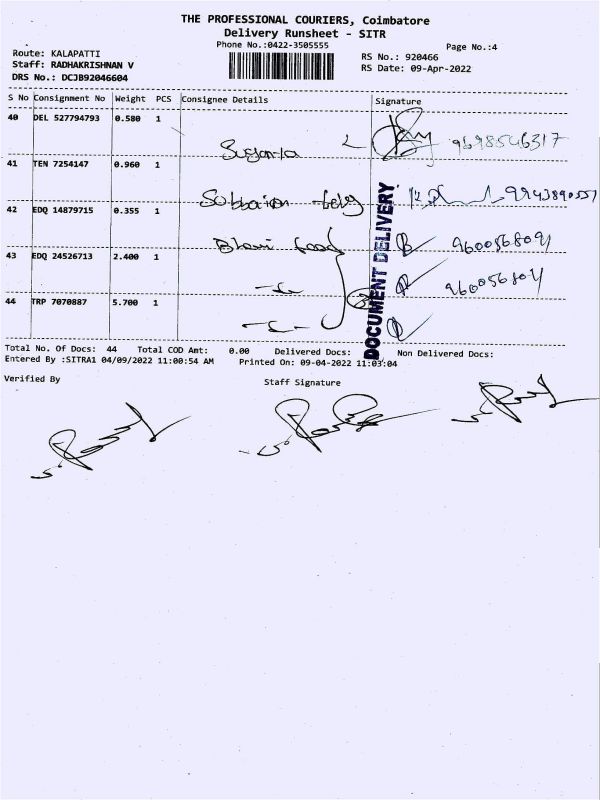 THE PROFESSIONAL COURIERS, Coimbatore
Delivery Runsheet - SITR
Phone No.:0422-3505555
Page No.:4
Route: KALAPATTI
RS No.: 920466
Staff: RADHAKRISHNAN V
RS Date: 09-Apr-2022
DRS No.: DCJB92046604
S No Consignment No Weight PCS Consignee Details Signature
40 DEL 527794793 0.580 1
9698546317
41 TEN 7254147 0.960 1
9943890557
42 EDQ 14879715 0.355 1
food
43 EDQ 24526713 2.400 1
44 TRP 7070887 5.700 1
DOCUMENT DELIVERY
Total No. Of Docs: 44 Total COD Amt: 0.00 Delivered Docs: Non Delivered Docs:
Entered By :SITRA1 04/09/2022 11:00:54 AM Printed On: 09-04-2022 11:03:04
Verified By
Staff Signature